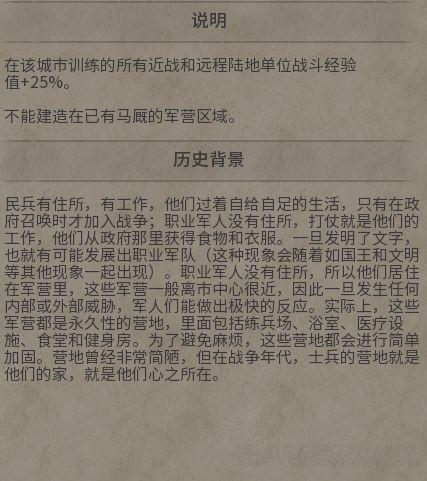 说明
在该城市训练的所有近战和远程陆地单位战斗经验
值+25%。
不能建造在已有马厩的军营区域。
历史背景
民兵有住所，有工作，他们过着自给自足的生活，只有在政
府召唤时才加入战争；职业军人没有住所，打仗就是他们的
工作，他们从政府那里获得食物和衣服。一旦发明了文字，
也就有可能发展出职业军队（这种现象会随着如国王和文明
等其他现象一起出现）。职业军人没有住所，所以他们居住
在军营里，这些军营一般离市中心很近，因此一旦发生任何
内部或外部威胁，军人们能做出极快的反应。实际上，这些
军营都是永久性的营地，里面包括练兵场、浴室、医疗设
施、食堂和健身房。为了避免麻烦，这些营地都会进行简单
加固。营地曾经非常简陋，但在战争年代，士兵的营地就是
他们的家，就是他们心之所在。